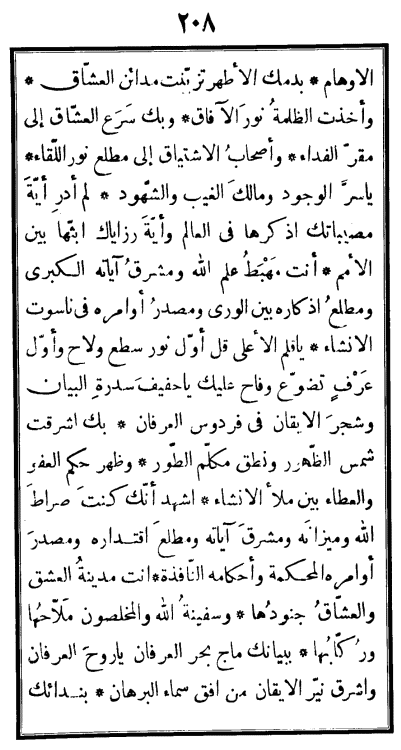 ٢٠٨
الاوهام * بدمك الأطهر تزيّنت مدائن العشّاق *
وأخذت الظلمةُ نورَ الآفاق * وبك سَرَع العشّاق إلى
مقرّ الفداء * وأصحابُ الاشتياق إلى مطلع نور اللّقاء *
ياسرَّ الوجود ومالكَ الغيب والشّهود * لم أدرِ أيّةَ
مصيباتك اذكرها فى العالم وأيّةَ رزاياك ابثّها بين
الأمم * أنت مَهْبَطُ علم الله ومشرقُ آياته الكبرى
ومطلعُ اذكاره بين الورى ومصدرُ أوامره فى ناسوت
الانشاء * ياقلم الأعلى قل أوّل نور سطع ولاح وأوّل
عَرْفٍ تضوّع وفاح عليك ياحفيف سدرة البيان
وشجرَ الايقان فى فردوس العرفان * بك اشرقت
شمس الظّهور ونطق مكلّم الطّور * وظهر حكم العفو
والعطاء بين ملأ الانشاء * اشهد أنّك كنتَ صراطَ
الله وميزانَه ومشرقَ آياته ومطلعَ اقتداره ومصدرَ
أوامره المحكمة وأحكامه النّافذة * انت مدينةُ العشق
والعشّاقُ جنودُها * وسفينةُ الله والمخلصون مَلّاحُها
ورُكّابُها * ببيانك ماج بحر العرفان ياروحَ العرفان
واشرق نيّر الايقان من افق سماء البرهان * بندائك